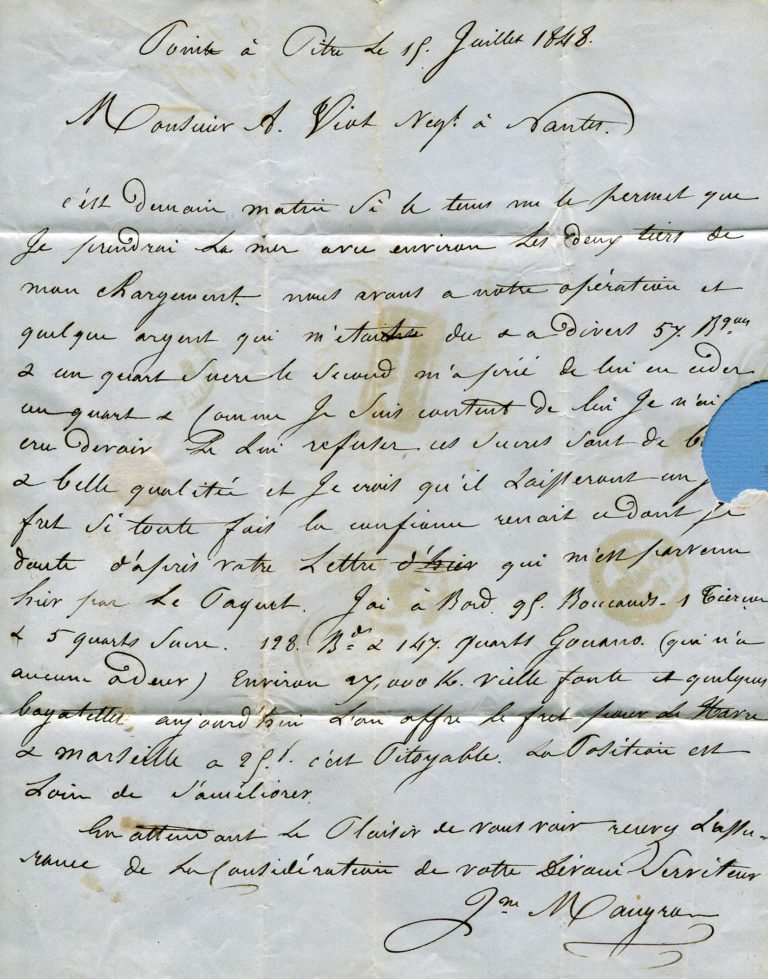 Pointe à Pitre Le 15. Juillet 1848.
Monsieur A. Viot Negt. à Nantes.
c'est demain matin Si le tems me le permet que
Je prendrai La mer avec environ Les deux tiers de
mon chargement. nous avons a notre opération et
quelque argent qui m'étaient du & a Divers 57. Bqaux
& un quart Sucre le Second m'a prié de lui en céder
un quart & Comme Je Suis content de lui Je n'ai
cru devoir Le Lui refuser ces Sucres Sont de
& belle qualitée et Je crois qu'il Laisseront un
fret Si toute fois la confiance renait ce dont Je
doute d'après votre Lettre d'hier qui m'est parvenu
hier par Le Paquet. J'ai à Bord 95. Boucauds. 1 Tierçon
& 5 quarts Sucre. 128. Bdes & 147. quarts Gouano. (qui n'a
aucune odeur) Environ 27,000 K. vielle fonte et quelques
bagatelles aujourd'hui L'on offre le fret pour Le Havre
& marseille a 25f. c'est Pitoyable. La Position est
Loin de S'améliorer.
En attendant Le Plaisir de vous voir recevez L'assu-
rance de La Considération de votre Dévoué Serviteur
Jne Maugran